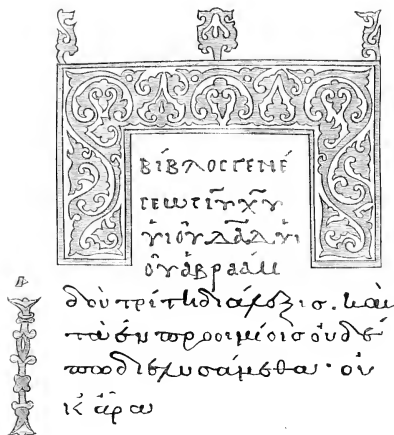 ΒΙΒΛΟϹ ΓΕΝΕ
ϹΕΩϹ ΙΥ̅ ΧΥ̅
ΥΙΟΥ ΔΑ̅Δ ΥΙ
ΟΥ ΑΒΡΑΑΜ
Ἰδοὺ τρίτη διάλεξισ. καὶ
τὰ ἐν προοιμίοισ οὐδέ
πω διελυσάμεθα· οὐ
κ ἄρα